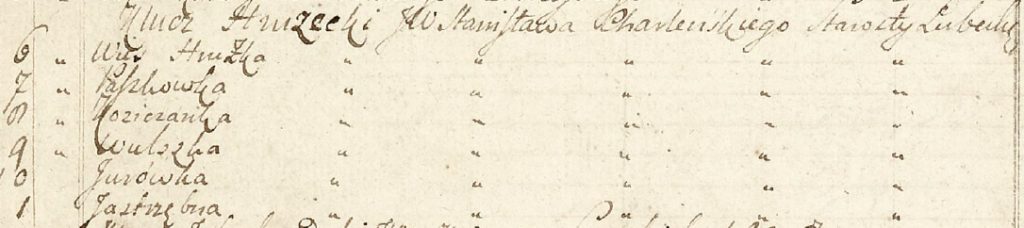 Klucz Hruzecki JW Stanisława Charleńskiego Starosty
6 " Wieś Hruzka " " " " "
7 " Paszkowka " " " " "
8 " Koziezanka " " " " "
9 " Wulszka " " " " "
0 Jurówka " " " " "
1 Jastrzębna " " " " "